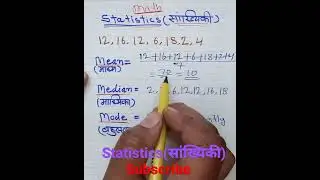 Math
Statistics (सांख्यिकी)
12, 16, 12, 6, 18, 2, 4
Mean= 12+16+12+6+18+2+4
(माध्य) 7
= 70 = 10
Median= 2, 6, 12, 12, 16, 18
(माध्यिका)
Mode =
Statistics(सांख्यिकी)
Subscribe